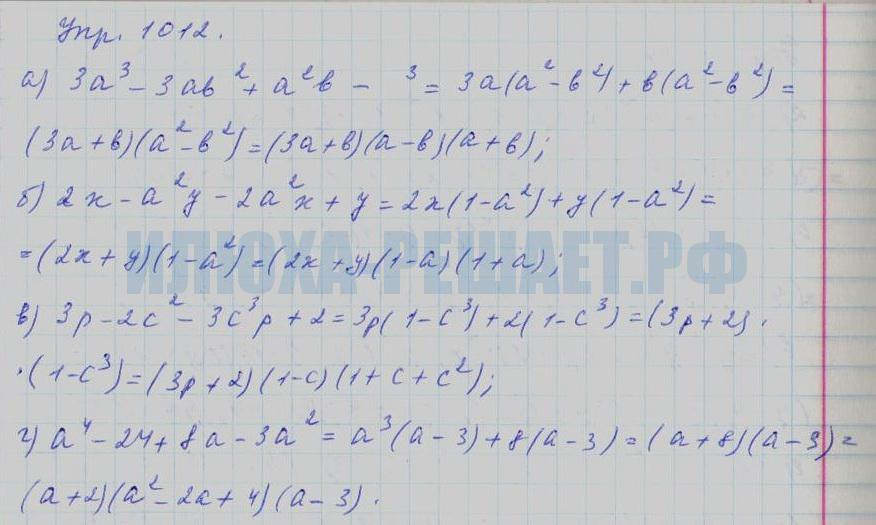 Упр. 1012.
а) 3a³ - 3ab² + a²b - ³ = 3a(a² - b²) + b(a² - b²) =
(3a + b)(a² - b²) = (3a + b)(a - b)(a + b);
б) 2x - a²y - 2a²x + y = 2x(1 - a²) + y(1 - a²) =
= (2x + y)(1 - a²) = (2x + y)(1 - a)(1 + a);
ИЛЮХА-РЕШАЕТ.РФ
в) 3p - 2c² - 3c³p + 2 = 3p(1 - c³) + 2(1 - c³) = (3p + 2) ·
· (1 - c³) = (3p + 2)(1 - c)(1 + c + c²);
г) a⁴ - 24 + 8a - 3a² = a³(a - 3) + 8(a - 3) = (a + 8)(a - 3) =
(a + 2)(a² - 2a + 4)(a - 3).